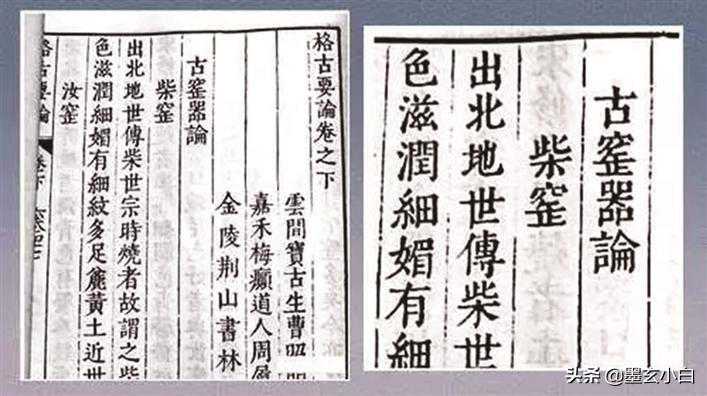 格古要論卷之下
雲間寶古生曹昭
嘉禾梅癲道人周履
金陵荆山書林
古窰器論
柴窰
出北地世傳柴世宗時燒者故謂之柴
色滋潤細媚有細紋多足麄黃土近世
汝窰
格古要論 卷下
古窰器論
柴窰
出北地世傳柴世
色滋潤細媚有細
头条 @墨玄小白